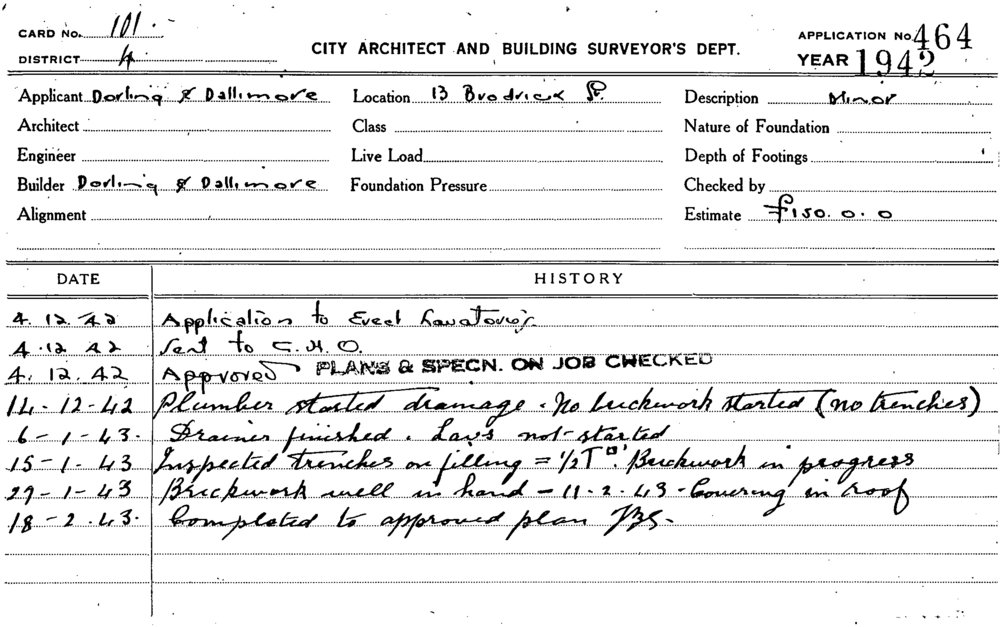 CARD No. 101.
DISTRICT 4
CITY ARCHITECT AND BUILDING SURVEYOR'S DEPT.
APPLICATION No. 464
YEAR 1942
Applicant Dorling & Dallimore Location 13 Brodrick St. Description Minor
Architect Class Nature of Foundation
Engineer Live Load Depth of Footings
Builder Dorling & Dallimore Foundation Pressure Checked by
Alignment Estimate £150. 0. 0
DATE HISTORY
4. 12. 42 Application to Erect Lavatories.
4. 12 42 Sent to C. H. O.
4. 12. 42 Approved PLANS & SPECN. ON JOB CHECKED
14 - 12 - 42 Plumber started drainage. No brickwork started (no trenches)
6 - 1 - 43. Drainer finished. Lavs not started
15 - 1 - 43 Inspected trenches on filling = 1/2 T □'. Brickwork in progress
29 - 1 - 43 Brickwork well in hand - 11 - 2. 43 - Covering in roof
18 - 2. 43. Completed to approved plan